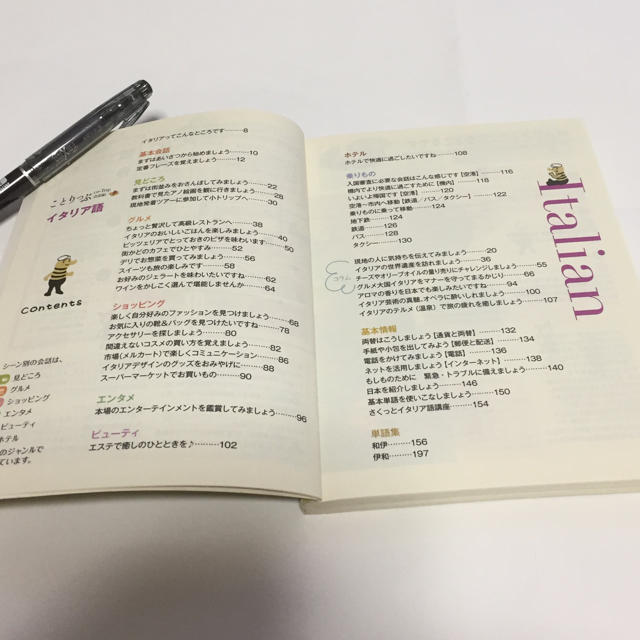 ことりっぷ co-Trip 会話帖
イタリア語
Contents
シーン別の会話は、
見どころ
グルメ
ショッピング
エンタメ
ビューティ
ホテル
のジャンルで
ています。
イタリアってこんなところです……8
基本会話
まずはあいさつから始めましょう……10
定番フレーズを覚えましょう……12
見どころ
まずは街並みをおさんぽしてみましょう……22
教科書で見たアノ絵画を観に行きましょう……28
現地発着ツアーに参加して小トリップへ……30
グルメ
ちょっと贅沢して高級レストランへ……38
イタリアのおいしいごはんを楽しみましょう……40
ピッツェリアでとっておきのピザを味わいます……50
街かどのカフェでひとやすみ……52
デリでお惣菜を買ってみましょう……56
スイーツも旅の楽しみです……58
お好みのジェラートを味わいたいですね……62
ワインをかしこく選んで堪能しませんか……64
ショッピング
楽しく自分好みのファッションを見つけましょう……68
お気に入りの靴&バッグを見つけたいですね……78
アクセサリーを探しましょう……80
間違えないコスメの買い方を覚えましょう……82
市場(メルカート)で楽しくコミュニケーション……86
イタリアデザインのグッズをおみやげに……88
スーパーマーケットでお買いもの……90
エンタメ
本場のエンターテインメントを鑑賞してみましょう……96
ビューティ
エステで癒しのひとときを♪……102
ホテル
ホテルで快適に過ごしたいですね……108
乗りもの
入国審査に必要な会話はこんな感じです【空港】……116
機内でより快適に過ごすために【機内】……118
いよいよ帰国です【空港】……120
空港~市内へ移動【鉄道/バス/タクシー】……122
乗りものに乗って移動……124
地下鉄……124
鉄道……126
バス……128
タクシー……130
コラム
現地の人に気持ちを伝えてみましょう……20
イタリアの世界遺産を訪れましょう……36
チーズやオリーブオイルの量り売りにチャレンジしましょう……55
グルメ大国イタリアをマナーを守ってまるかじり……66
アロマの香りを日本でも楽しみたいですね……94
イタリア芸術の真髄、オペラに酔いしれましょう……100
イタリアのテルメ(温泉)で旅の疲れを癒しましょう……107
基本情報
両替はこうしましょう【通貨と両替】……132
手紙や小包を出してみよう【郵便と配送】……134
電話をかけてみましょう【電話】……136
ネットを活用しましょう【インターネット】……138
もしものために 緊急・トラブルに備えましょう……140
日本を紹介しましょう……146
基本単語を使いこなしましょう……150
さくっとイタリア語講座……154
単語集
和伊……156
伊和……197
Italian